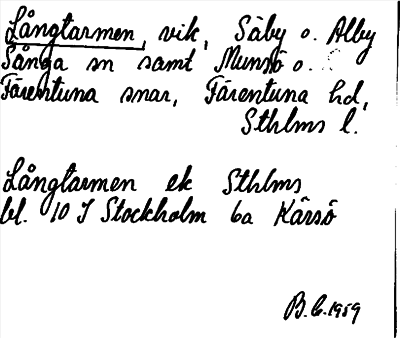 Långtarmen, vik, Säby o. Alby
Sånga sn samt Munsö o.
Färentuna snar, Färentuna hd,
Sthlms l.
Långtarmen ek Sthlms
bl. 10 I Stockholm 6a Kärsö
B.G. 1959